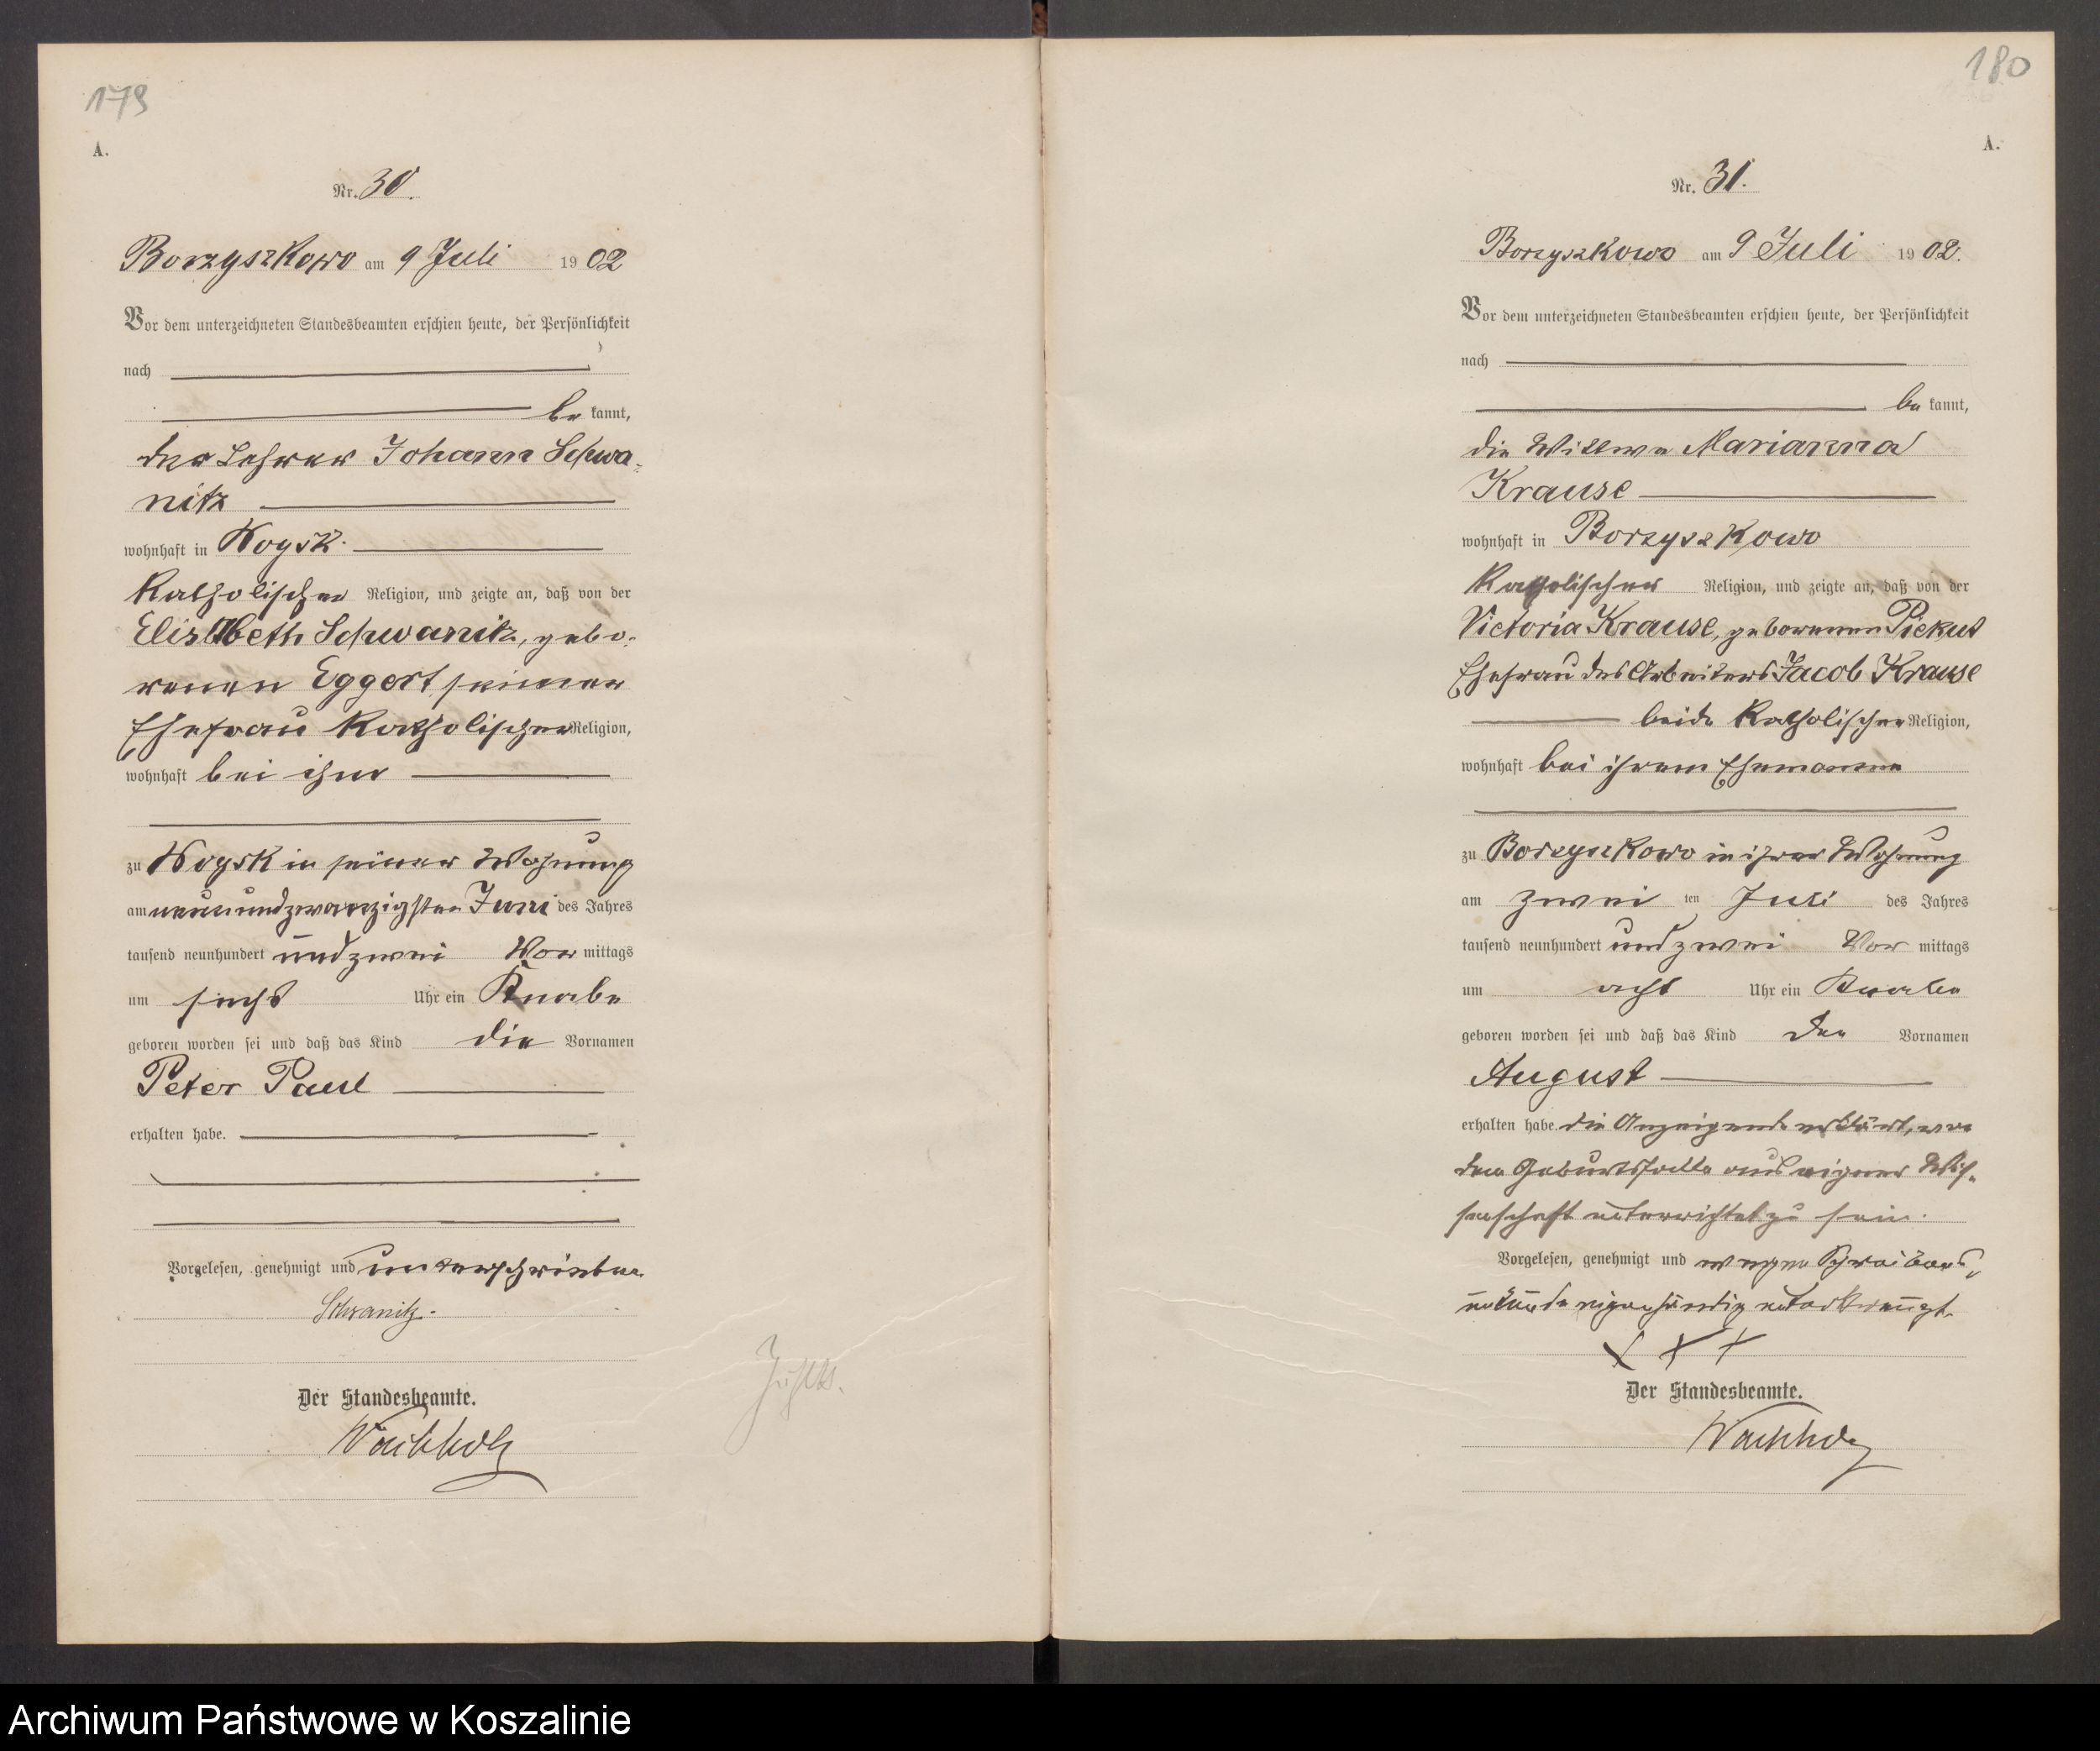 179
A.
Nr. 30.
Borzyszkowo am 9 Juli 1902
Vor dem unterzeichneten Standesbeamten erschien heute, der Persönlichkeit
nach
be kannt,
der Lehrer Johann Schwa-
nitz
wohnhaft in
Katholischer Religion, und zeigte an, daß von der
Elisabeth Schwanitz, gebo-
renen Eggert seiner
Ehefrau Katholischer Religion,
wohnhaft bei ihm
zu in seiner Wohnung
am neunundzwanzigsten Juni des Jahres
tausend neunhundert undzwei Vor mittags
um sechs Uhr ein Knabe
geboren worden sei und daß das Kind die Vornamen
Peter Paul
erhalten habe.
Vorgelesen, genehmigt und unterschrieben
Schwanitz.
Der Standesbeamte.
Wachholz
180
A.
Nr. 31.
Borzyszkowo am 9 Juli 1902.
Vor dem unterzeichneten Standesbeamten erschien heute, der Persönlichkeit
nach
be kannt,
die Wittwe Marianna
Krause
wohnhaft in Borzyszkowo
Katholischer Religion, und zeigte an, daß von der
Victoria Krause, geborenen Piekut
Ehefrau des Arbeiters Jacob Krause
beide Katholischer Religion,
wohnhaft bei ihrem Ehemanne
zu Borzyszkowo in ihrer Wohnung
am zwei ten Juli des Jahres
tausend neunhundert undzwei Vor mittags
um acht Uhr ein Knabe
geboren worden sei und daß das Kind den Vornamen
August
erhalten habe. die Anzeigende erklärt, von
dem Geburtsfalle aus eigner Wis-
senschaft unterrichtet zu sein.
Vorgelesen, genehmigt und wegen Schreibens
unkunde eigenhändig unterkreuzt.
+ + +
Der Standesbeamte.
Wachholz
Archiwum Państwowe w Koszalinie